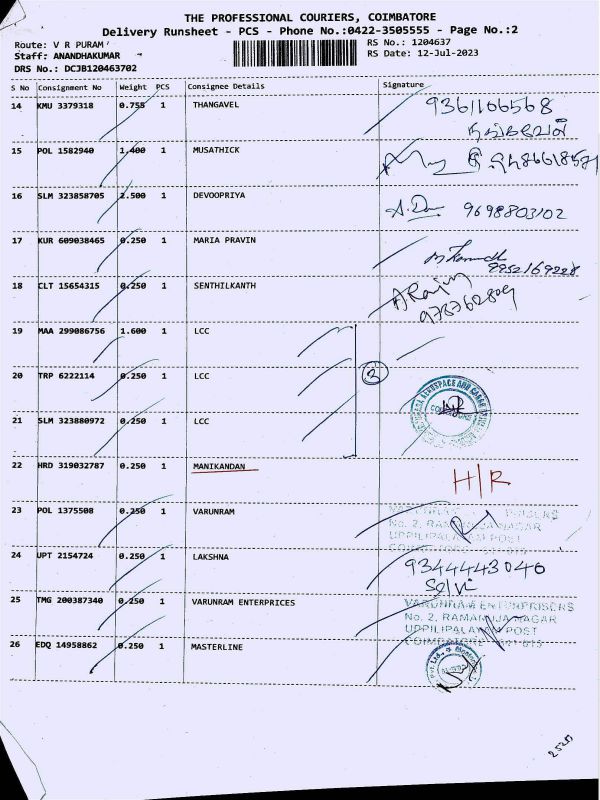 THE PROFESSIONAL COURIERS, COIMBATORE
Delivery Runsheet - PCS - Phone No.:0422-3505555 - Page No.:2
Route: V R PURAM
Staff: ANANDHAKUMAR
DRS No.: DCJB120463702
RS No.: 1204637
RS Date: 12-Jul-2023
S No Consignment No Weight PCS Consignee Details Signature
14 KMU 3379318 0.755 1 THANGAVEL 9361106568
தங்கவேல்
15 POL 1582940 1.400 1 MUSATHICK
16 SLM 323858705 2.500 1 DEVOOPRIYA 9698803102
17 KUR 609038465 0.250 1 MARIA PRAVIN
9952169228
18 CLT 15654315 0.250 1 SENTHILKANTH
978762809
19 MAA 299086756 1.600 1 LCC
20 TRP 6222114 0.250 1 LCC 3
21 SLM 323880972 0.250 1 LCC
22 HRD 319032787 0.250 1 MANIKANDAN H/R
23 POL 1375508 0.250 1 VARUNRAM
No. 2, RAMANUJA NAGAR
UPPILIPALAYAM POST
24 UPT 2154724 0.250 1 LAKSHNA 9344443046
Selvi
25 TMG 200387340 0.250 1 VARUNRAM ENTERPRICES VARUNRAM ENTERPRISERS
No. 2, RAMANUJA NAGAR
UPPILIPALAYAM POST
COIMBATORE - 641 015
26 EDQ 14958862 0.250 1 MASTERLINE